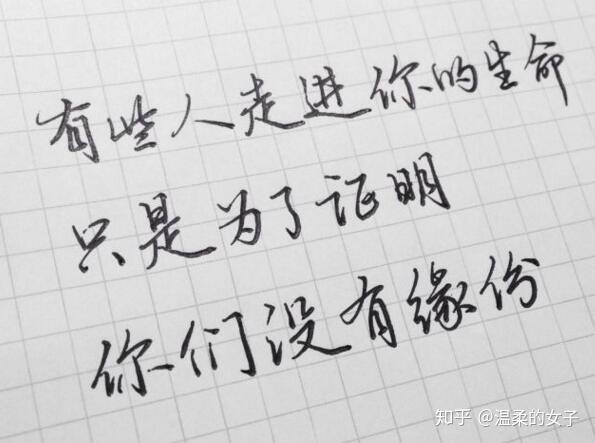 有些人走进你的生命
只是为了证明
你们没有缘份
知乎 @温柔的女子